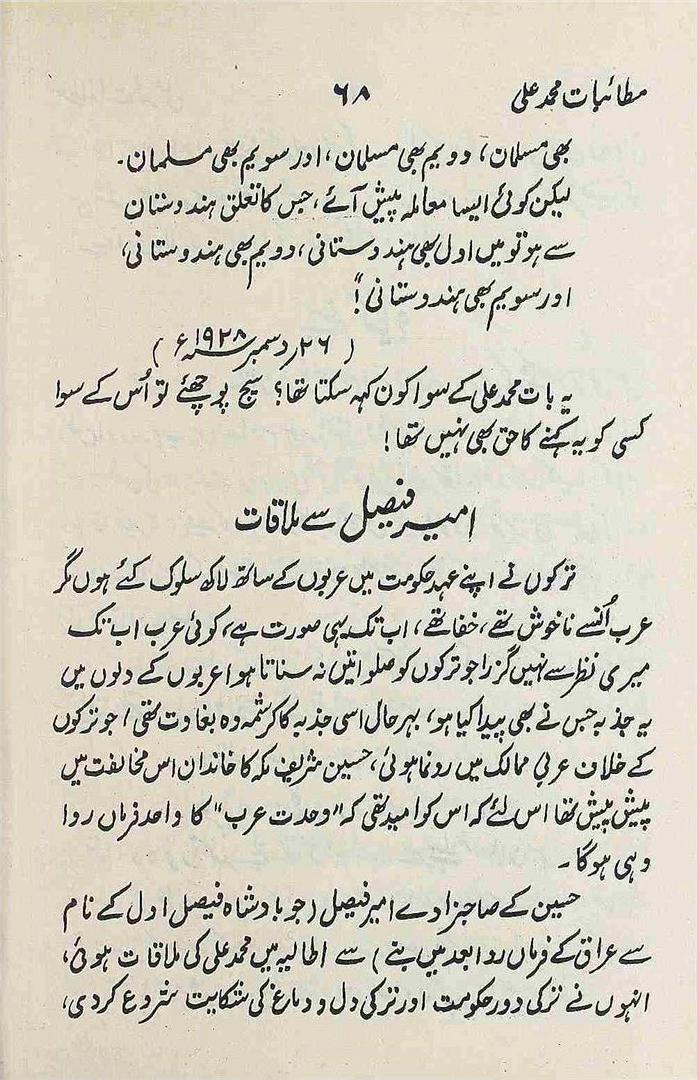 مطائبات محمد علی ۶۸
بھی مسلمان، دویم بھی مسلمان، اور سویم بھی مسلمان۔
لیکن کوئی ایسا معاملہ پیش آئے، جس کا تعلق ہندوستان
سے ہو تو میں اول بھی ہندوستانی، دویم بھی ہندوستانی،
اور سویم بھی ہندوستانی!"
(۲۶ر دسمبر ۱۹۲۸ء)
یہ بات محمد علی کے سوا کون کہہ سکتا تھا؟ سچ پوچھئے تو اُس کے سوا
کسی کو یہ کہنے کا حق بھی نہیں تھا!
امیر فیصل سے ملاقات
ترکوں نے اپنے عہد حکومت میں عربوں کے ساتھ لاکھ سلوک کئے ہوں مگر
عرب اُنسے ناخوش تھے، خفا تھے، اب تک یہی صورت ہے، کوئی عرب اب تک
میری نظر سے نہیں گزرا جو ترکوں کو صلواتیں نہ سناتا ہو! عربوں کے دلوں میں
یہ جذبہ جس نے بھی پیدا کیا ہو، بہر حال اسی جذبہ کا کرشمہ وہ بغاوت تھی! جو ترکوں
کے خلاف عربی ممالک میں رونما ہوئی، حسین شریف مکہ کا خاندان اس مخالفت میں
پیش پیش تھا اس لئے کہ اس کو امید تھی کہ "وحدت عرب" کا واحد فرماں روا
وہی ہوگا۔
حسین کے صاحبزادے امیر فیصل (جو بادشاہ فیصل اول کے نام
سے عراق کے فرماں روا بعد میں بنے) سے اطالیہ میں محمد علی کی ملاقات ہوئی،
انہوں نے ترکی دور حکومت اور ترکی دل و دماغ کی شکایت شروع کر دی،